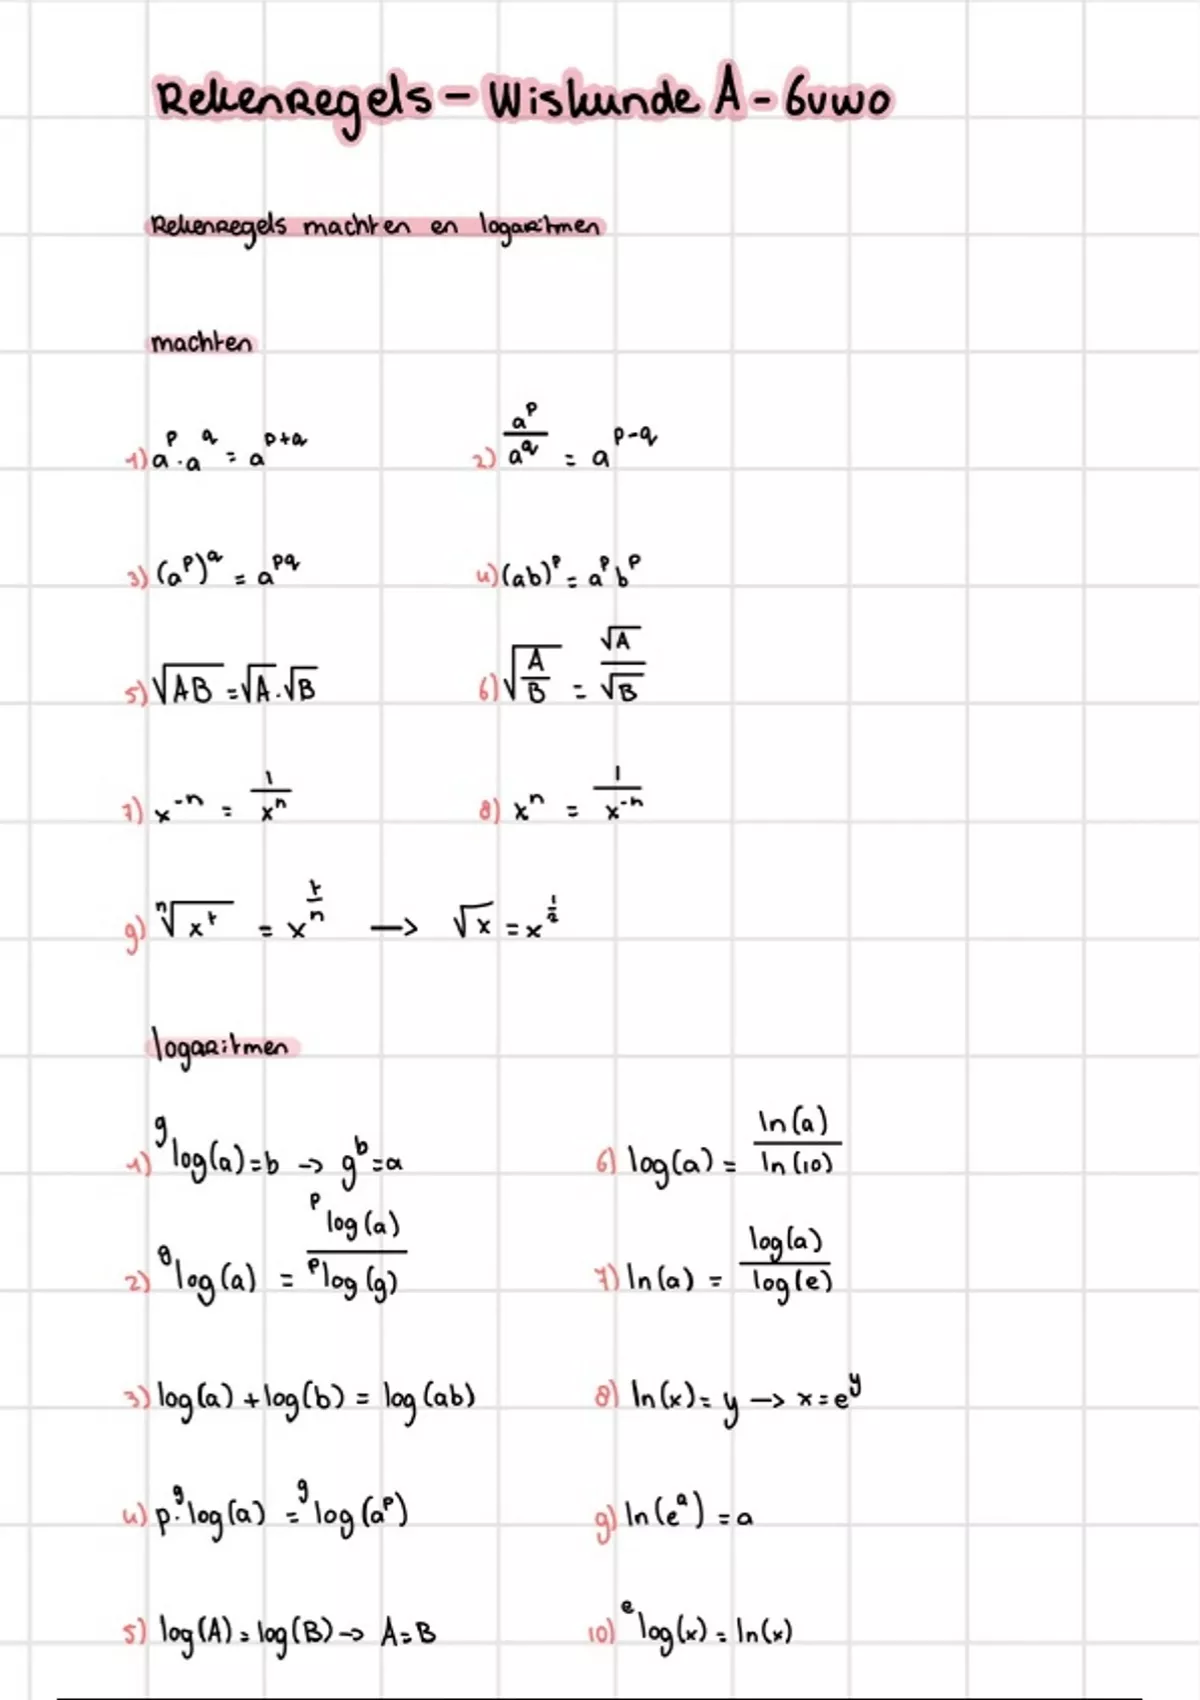 Rekenregels - Wiskunde A - 6vwo
Rekenregels machten en logaritmen
machten
1) a^p · a^q = a^(p+q)
2) a^p / a^q = a^(p-q)
3) (a^p)^q = a^(pq)
4) (ab)^p = a^p b^p
5) √(AB) = √A · √B
6) √(A/B) = √A / √B
7) x^(-n) = 1 / x^n
8) x^n = 1 / x^(-n)
9) ⁿ√(x^t) = x^(t/n) → √x = x^(1/2)
logaritmen
1) ^g log(a) = b → g^b = a
2) ^g log(a) = ^p log(a) / ^p log(g)
3) log(a) + log(b) = log(ab)
4) p · ^g log(a) = ^g log(a^p)
5) log(A) = log(B) → A = B
6) log(a) = ln(a) / ln(10)
7) ln(a) = log(a) / log(e)
8) ln(x) = y → x = e^y
9) ln(e^a) = a
10) ^e log(x) = ln(x)